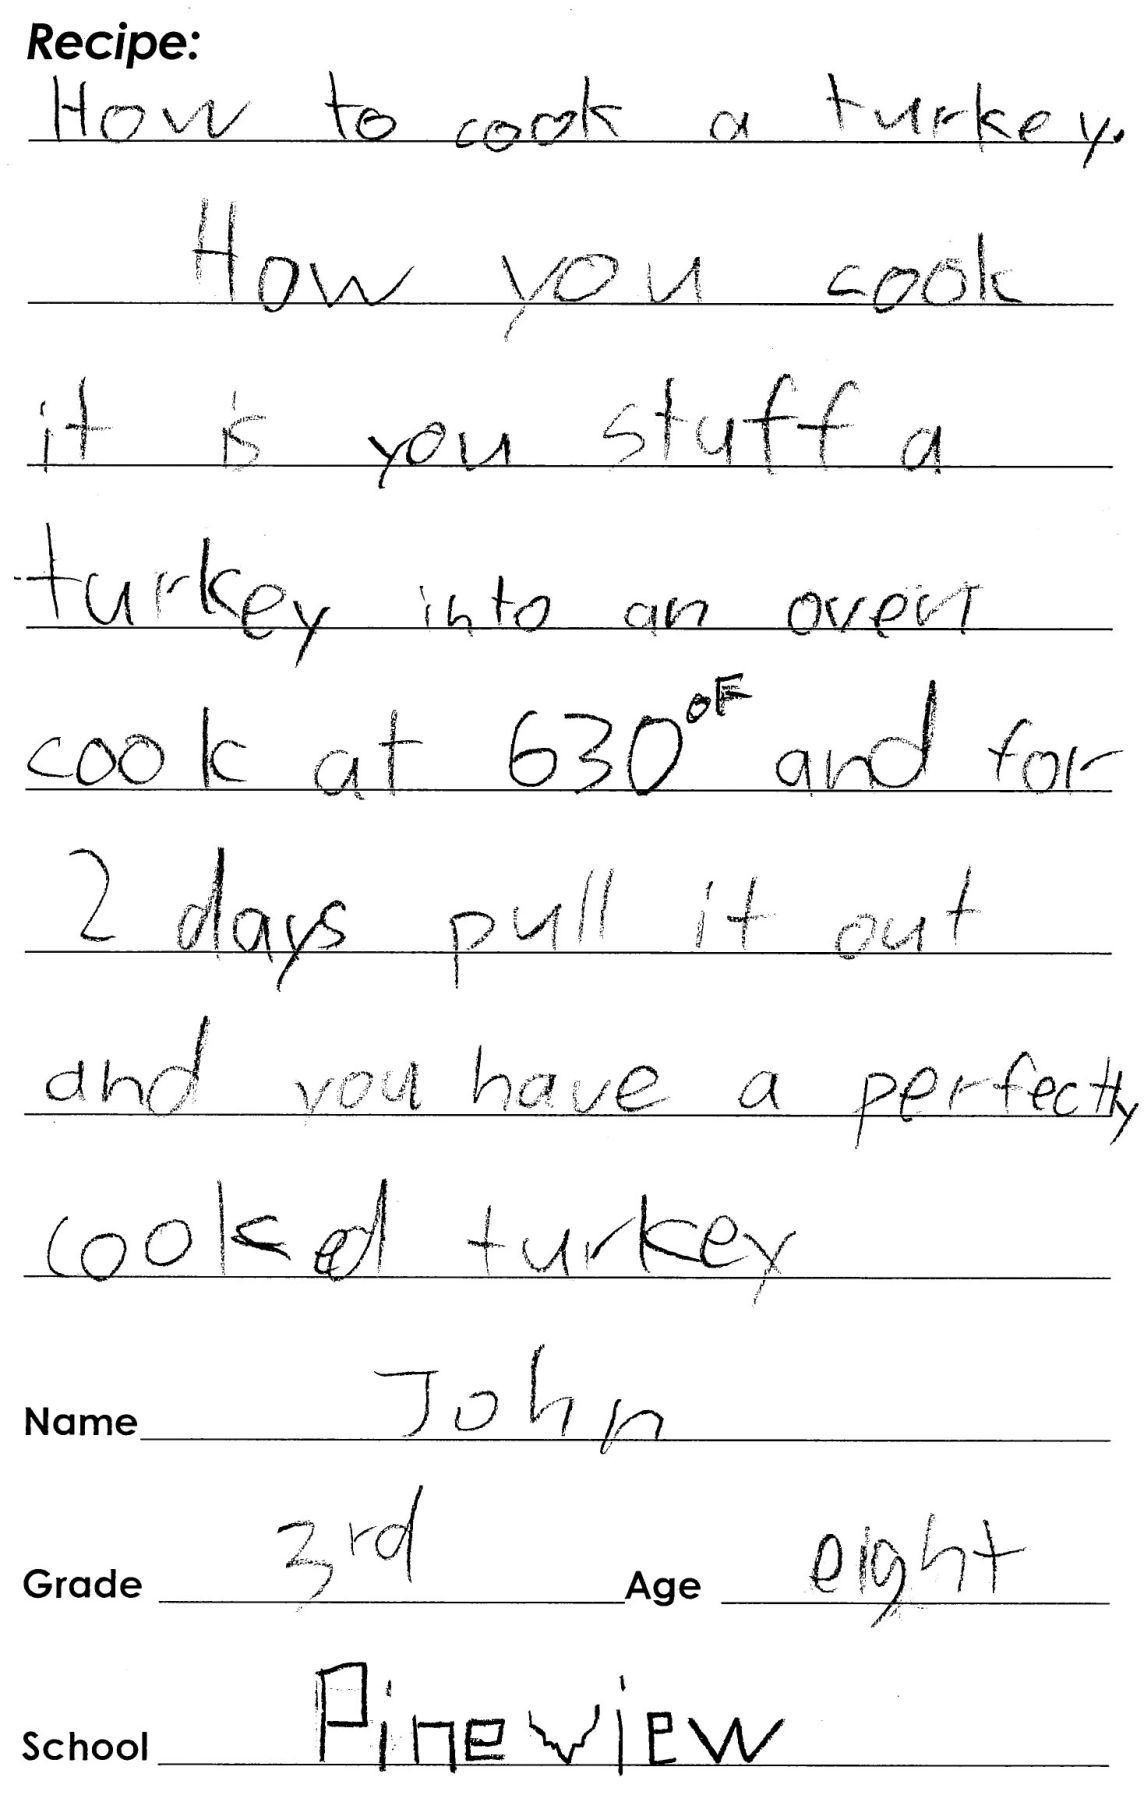 Recipe:
How to cook a turkey.
How you cook
it is you stuff a
turkey into an oven
cook at 630°F and for
2 days pull it out
and you have a perfectly
cooked turkey
Name John
Grade 3rd Age eight
School Pineview